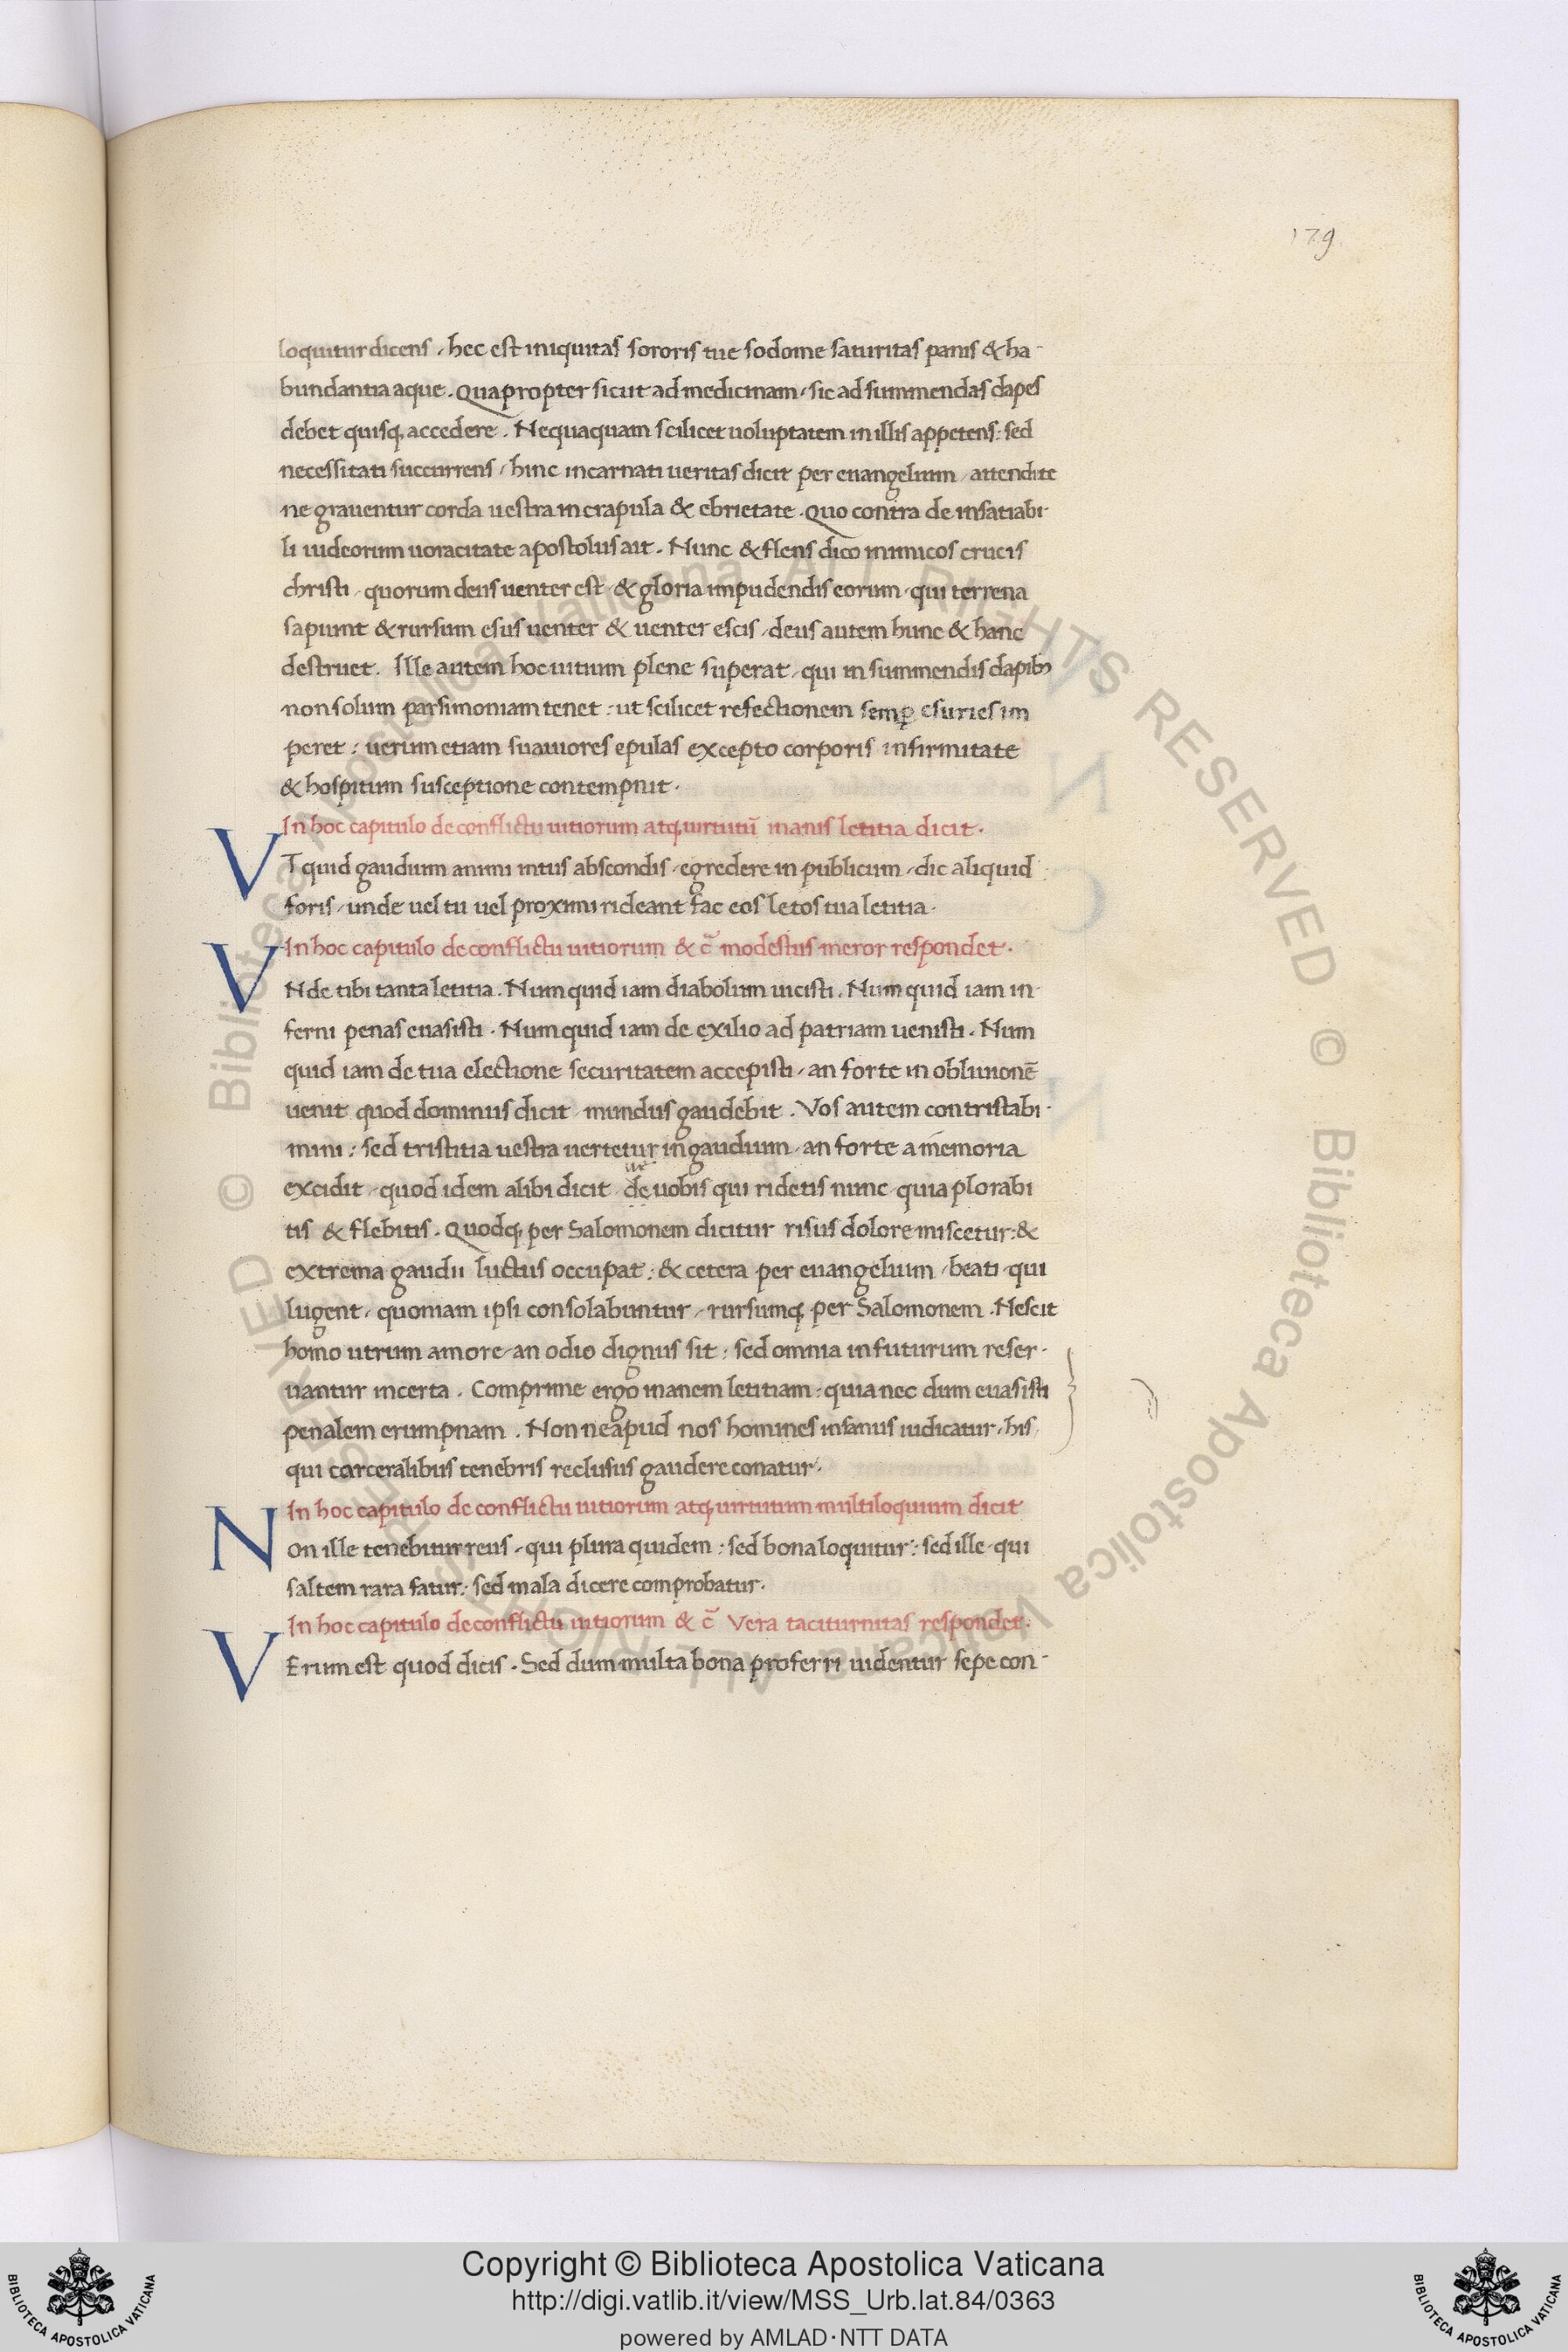 179
loquitur dicens, hec est iniquitas sororis tue sodome saturitas panis & ha-
bundantia aque. Quapropter sicut ad medicinam, sic ad summendas dapes
debet quisq, accedere. Nequaquam scilicet uoluptatem in illis appetens: sed
necessitati succurrens, hinc incarnati ueritas dicit per euangelium, attendite
ne grauentur corda uestra in crapula & ebrietate. Quo contra de insatiabi-
li iudeorum uoracitate apostolus ait. Nunc & flens dico inimicos crucis
christi, quorum deus uenter est, & gloria in pudendis eorum, qui terrena
sapiunt & rursum esus uenter & uenter escis, deus autem hunc & hanc
destruet. Ille autem hoc uitium plene superat, qui in summendis dapibꝫ
non solum parsimoniam tenet: ut scilicet refectionem semꝑ esuries im
peret: uerum etiam suauiores epulas excepto corporis infirmitate
& hospitum susceptione contempnit.
In hoc capitulo de conflictu uitiorum atq, uirtutū inanis letitia dicit.
VT quid gaudium animi intus abscondis, egredere in publicum, dic aliquid
foris, unde uel tu uel proximi rideant fac eos letos tua letitia.
In hoc capitulo de conflictu uitiorum & c̄ modestus meror respondet.
VNde tibi tanta letitia. Num quid iam diabolum uicisti. Num quid iam in-
ferni penas euasisti. Num quid iam de exilio ad patriam uenisti. Num
quid iam de tua electione securitatem accepisti, an forte in obliuionē
uenit quod dominus dicit, mundus gaudebit. Vos autem contristabi-
mini: sed tristitia uestra uertetur in gaudium, an forte a memoria
excidit, quod idem alibi dicit, ue uobis qui ridetis nunc, quia plorabi
tis & flebitis. Quodq, per Salomonem dicitur risus dolore miscetur: &
extrema gaudii luctus occupat: & cetera per euangelium, beati qui
lugent, quoniam ipsi consolabuntur, rursumq, per Salomonem. Nescit
homo utrum amore, an odio dignus sit: sed omnia in futurum reser-
uantur incerta. Comprime ergo inanem letitiam: quia nec dum euasisti
penalem erumpnam. Non ne apud nos homines insanus iudicatur, his
qui carceralibus tenebris reclusus gaudere conatur.
In hoc capitulo de conflictu uitiorum atq, uirtutum multiloquium dicit
NOn ille tenebitur reus, qui plura quidem: sed bona loquitur: sed ille, qui
saltem rara fatur: sed mala dicere comprobatur.
In hoc capitulo de conflictu uitiorum & c̄ Vera taciturnitas respondet.
VErum est quod dicis. Sed dum multa bona proferri uidentur sepe con-
© Biblioteca Apostolica Vaticana ALL RIGHTS RESERVED © Biblioteca Apostolica Vaticana ALL RIGHTS RESERVED
Copyright © Biblioteca Apostolica Vaticana
http://digi.vatlib.it/view/MSS_Urb.lat.84/0363
powered by AMLAD·NTT DATA
BIBLIOTECA APOSTOLICA VATICANA
BIBLIOTECA APOSTOLICA VATICANA